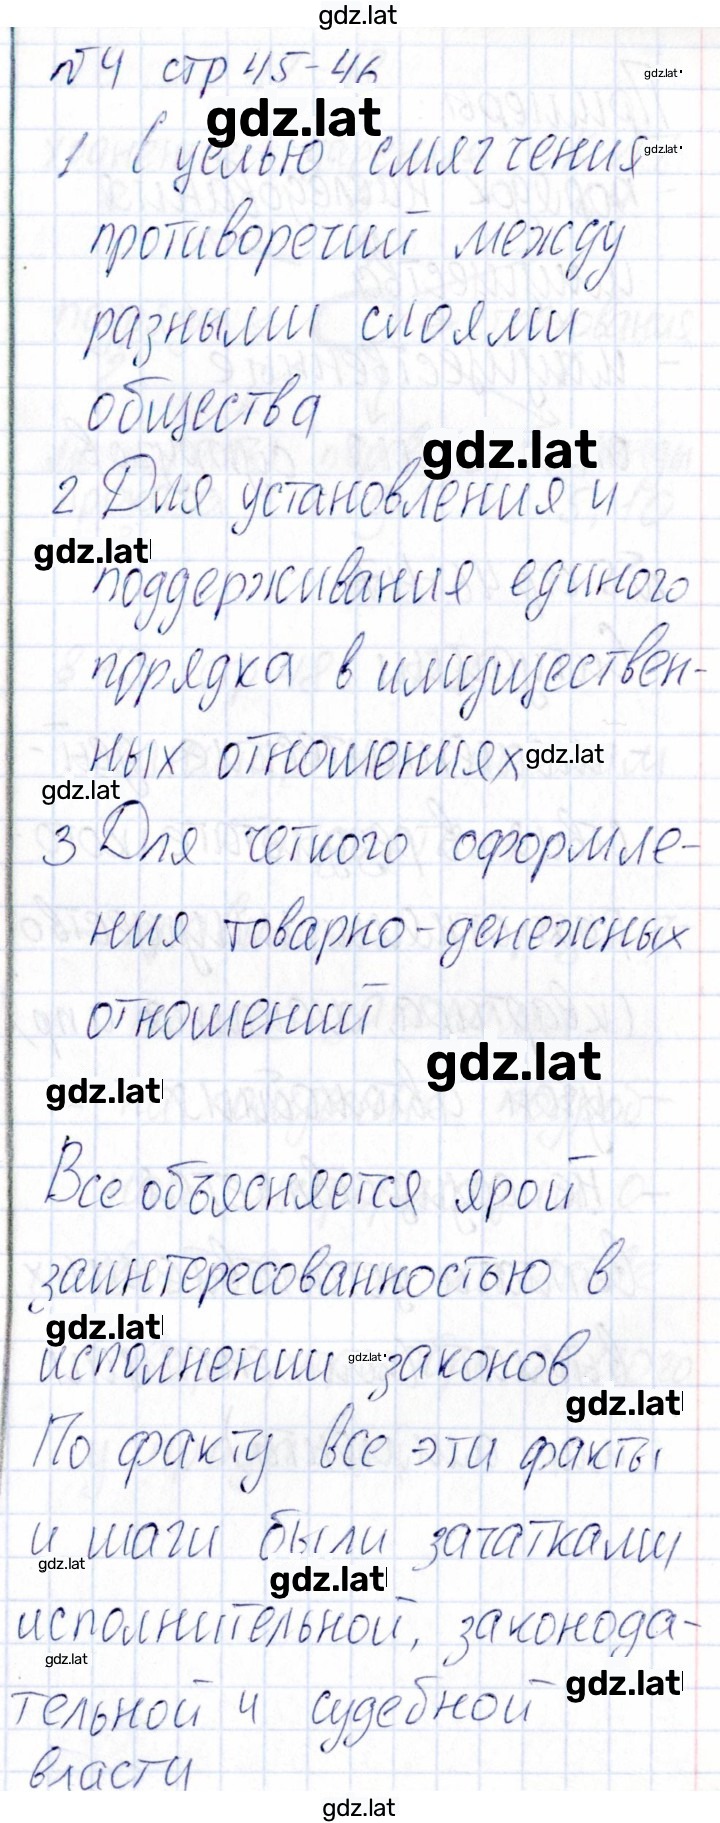 gdz.lat
№4 стр 45-46
gdz.lat
gdz.lat
1 С целью смягчения
gdz.lat
противоречий между
разными слоями
общества
gdz.lat
2 Для установления и
gdz.lat
поддерживания единого
порядка в имуществен-
ных отношениях
gdz.lat
gdz.lat
3 Для четкого оформле-
ния товарно-денежных
отношений
gdz.lat
gdz.lat
Все объясняется ярой
заинтересованностью в
gdz.lat
исполнении законов
gdz.lat
gdz.lat
По факту все эти факты
и шаги были зачатками
gdz.lat
gdz.lat
исполнительной, законода-
gdz.lat
тельной и судебной
gdz.lat
власти
gdz.lat